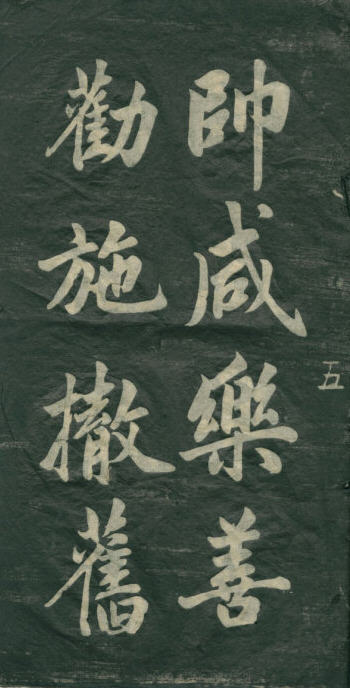 五
帥咸樂善
勸施撤舊